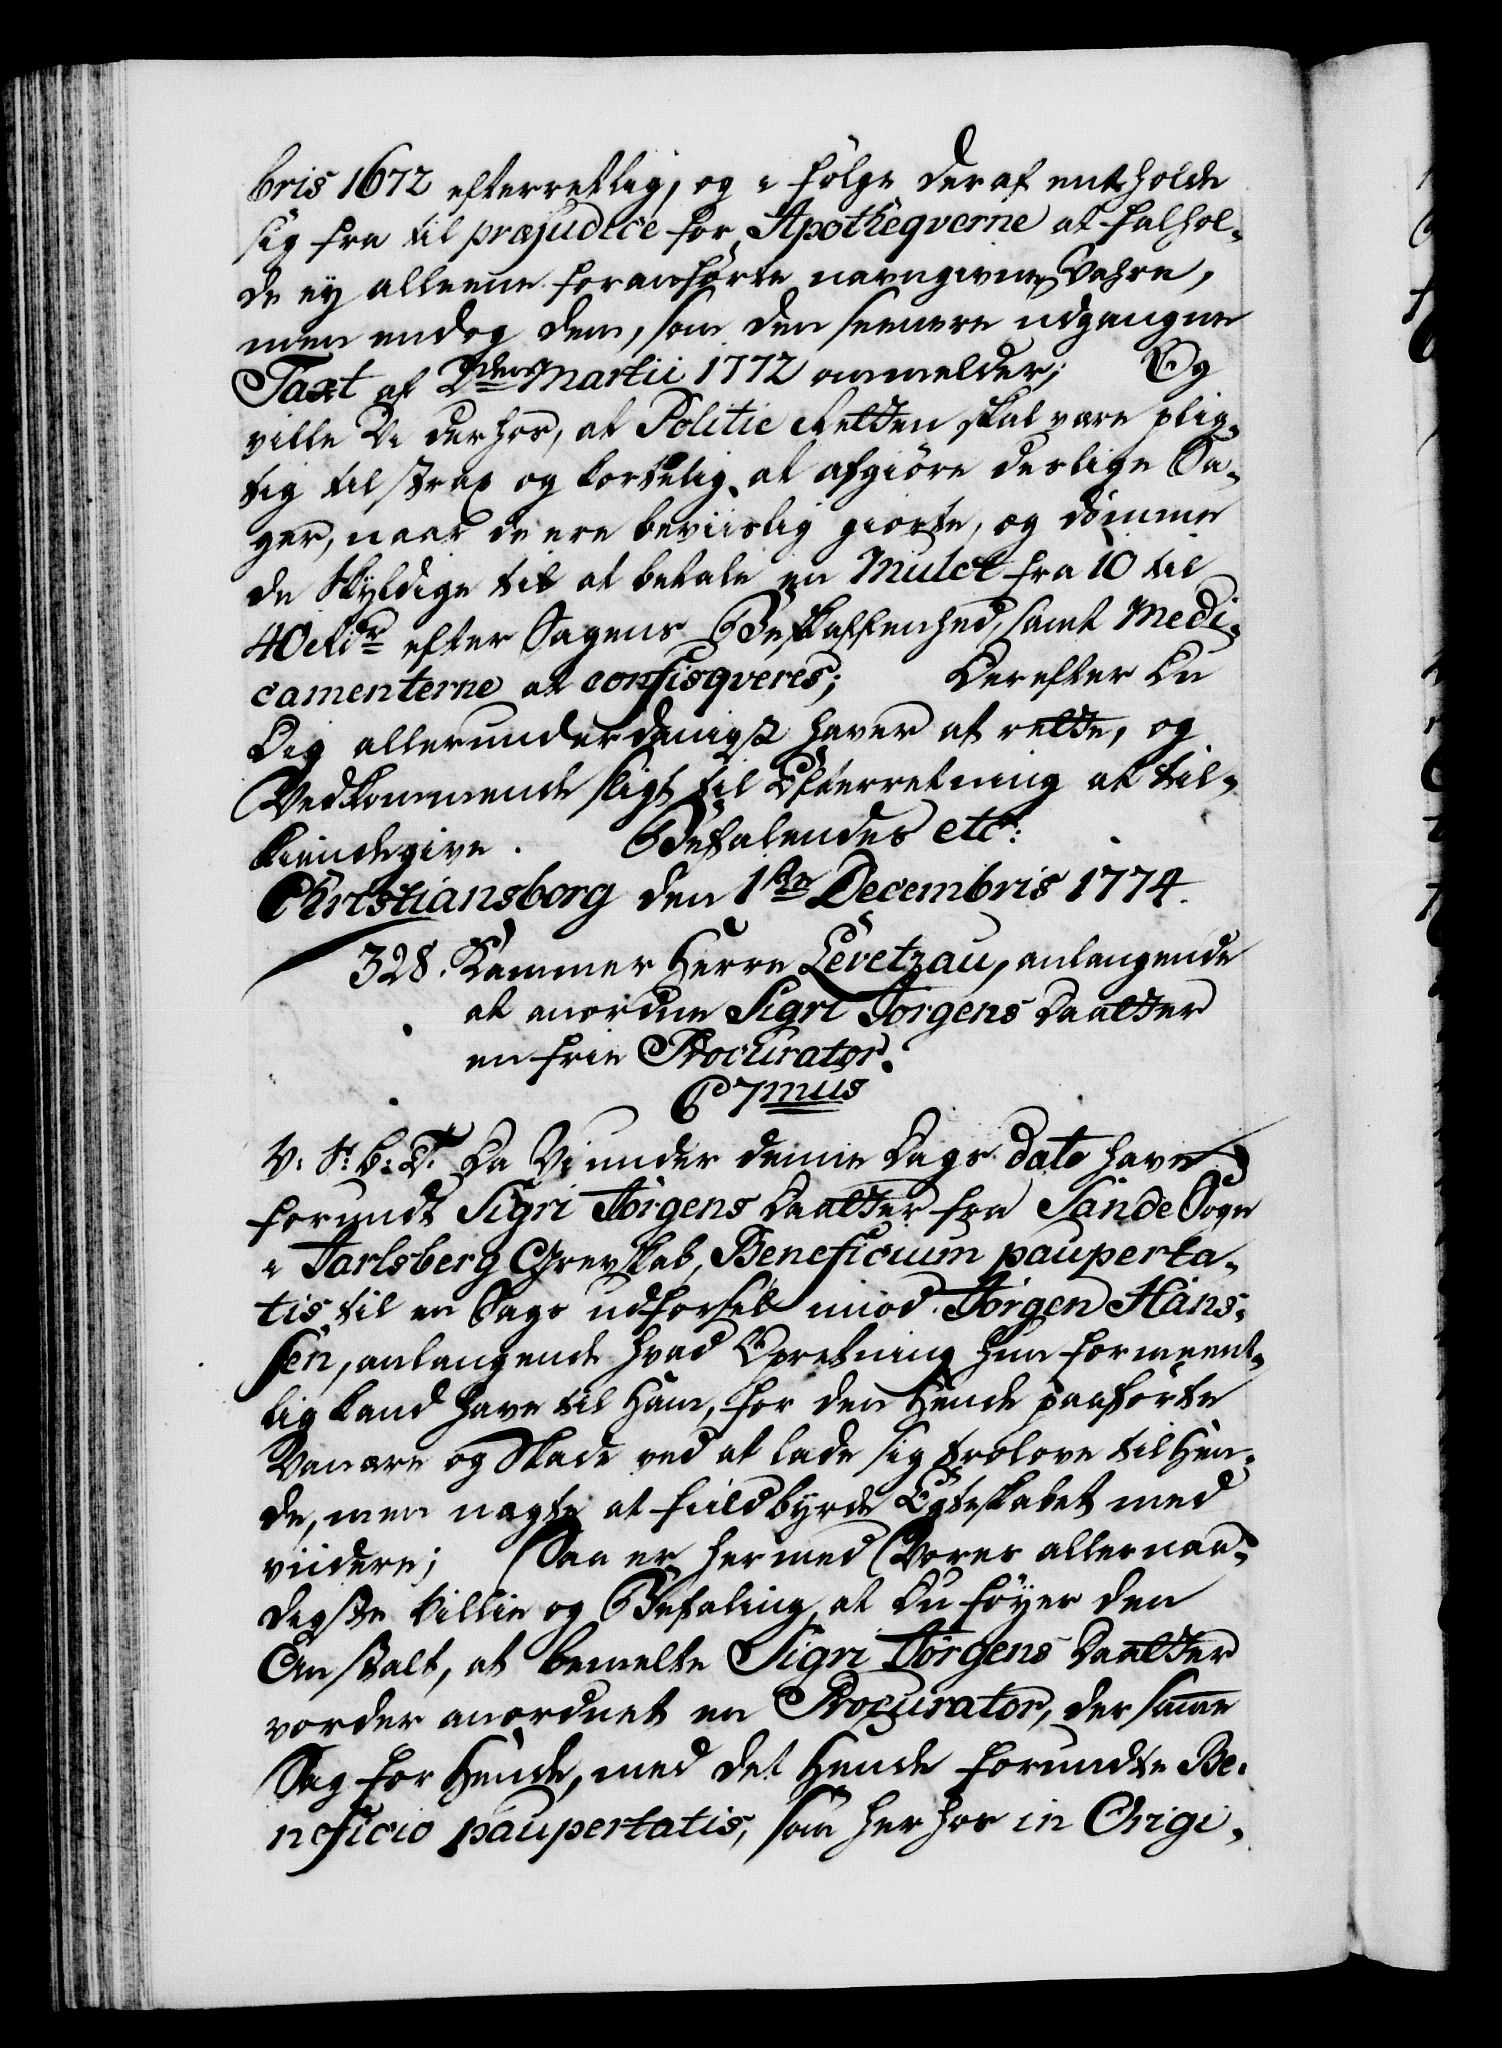 bris 1672 efterretlig, og i følge deraf entholde
sig fra til præjudice for Apothequerne at falhol-
de ey alleene foranførte navngivne Vahre,
men endog dem, som den seenere udgangne
Taxt af 2den Martii 1772 ommelder; Og
ville Vi derhos, at Politie Retten skal være plig-
tig til strax og kortelig at afgiöre deslige Sa-
ger, naar de ere beviislig giorte, og dömme
de skyldige til at betale en Mulct fra 10 til
40 Rdr efter Sagens Beskaffenhed, samt Medi-
camenterne at confisqveres; Derefter Du
Dig allerunderdanigst haver at rette, og
Vedkommende sligt til Efterretning at til-
kiendegive. Befalendes etc:
Christiansborg den 1ste Decembris 1774.
328. Kammer Herre Levetzau, anlangende
at anordne Sigri Jørgens Daatter
en frie Procurator.
C 7mus
V: S: b: T. Da Vi under denne Dags dato have
forundt Sigri Jörgens Daatter fra Sande Sogn
i Jarlsberg Grevskab, Beneficium pauperta-
tis til en Sags udførsel imod Jörgen Hans-
sen, anlangende hvad Opretning hun formeent-
lig kand have til Ham, for den Hende paaførte
Vanære og Skade ved at lade sig trolove til Hen-
de, men nægte at fuldbyrde Egteskabet med
viidere; Saa er hermed Vores allernaa-
digste Villie og Befaling, at Du föyer den
Anstalt, at bemelte Sigri Jørgens Daatter
vorder anordnet en Procurator, der samme
Sag for Hende, med det Hende forundte Be-
neficio paupertatis, som herhos in Origi-